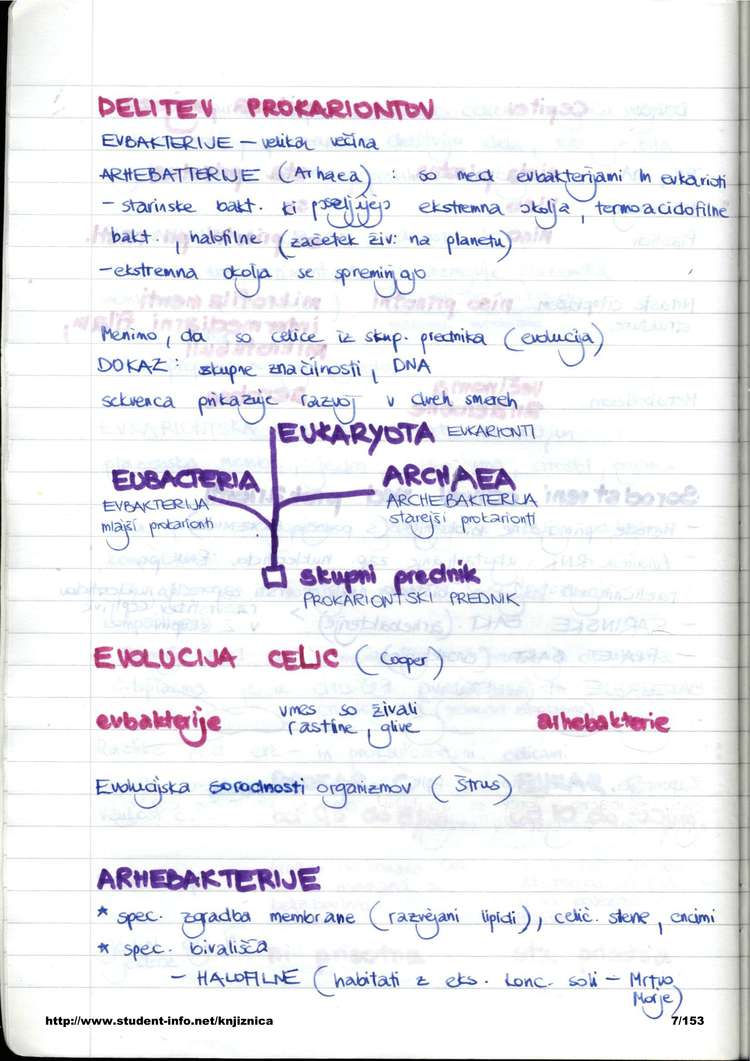 DELITEV PROKARIONTOV
EVBAKTERIJE – velika večina
ARHEBATTERIJE (Arhaea) : so med evbakterijami in evkarioti
– starinske bakt. ki poseljujejo ekstremna okolja, termoacidofilne
bakt., halofilne (začetek živ. na planetu)
– ekstremna okolja se spreminjajo
Menimo, da so celice iz skup. prednika (evolucija)
DOKAZ: skupne značilnosti, DNA
sekvenca prikazuje razvoj v dveh smereh
EUKARYOTA EVKARIONTI
EUBACTERIA ARCHAEA
EVBAKTERIJA ARCHEBAKTERIJA
mlajši prokarionti starejši prokarionti
skupni prednik
PROKARIONTSKI PREDNIK
EVOLUCIJA CELIC (Cooper)
evbakterije vmes so živali arhebakterie
rastline, glive
Evolucijska sorodnosti organizmov (Štrus)
ARHEBAKTERIJE
* spec. zgradba membrane (razvejani lipidi), celič. stene, encimi
* spec. bivališča
– HALOFILNE (habitati z eks. konc. soli – Mrtvo
Morje)
http://www.student-info.net/knjiznica 7/153